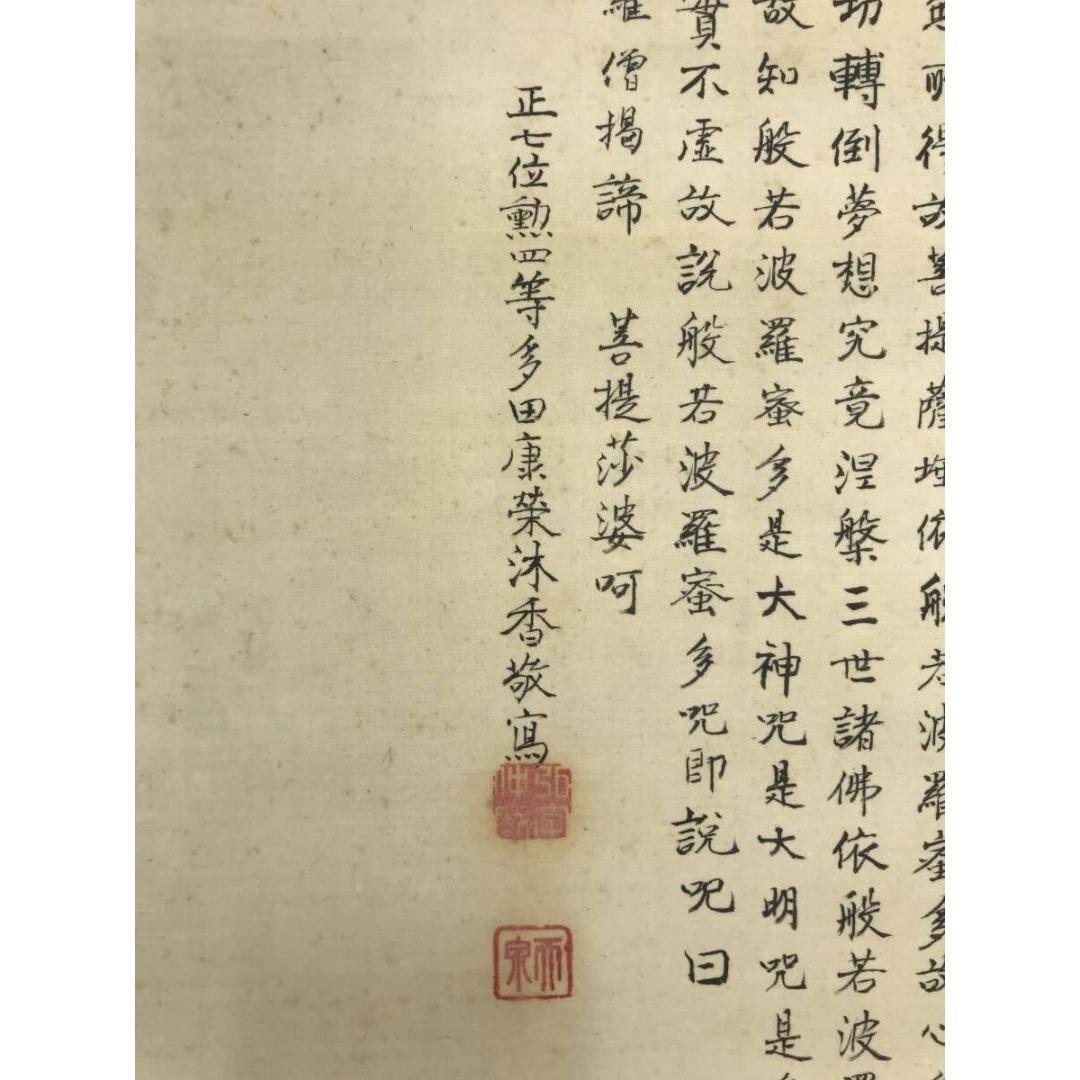 所得故菩提薩埵依般若波羅蜜多故心
切轉倒夢想究竟涅槃三世諸佛依般若波羅
故知般若波羅蜜多是大神咒是大明咒是
實不虛故說般若波羅蜜多咒即說咒曰
羅僧揭諦 菩提莎婆呵
正七位勲四等多田康榮沐香敬寫